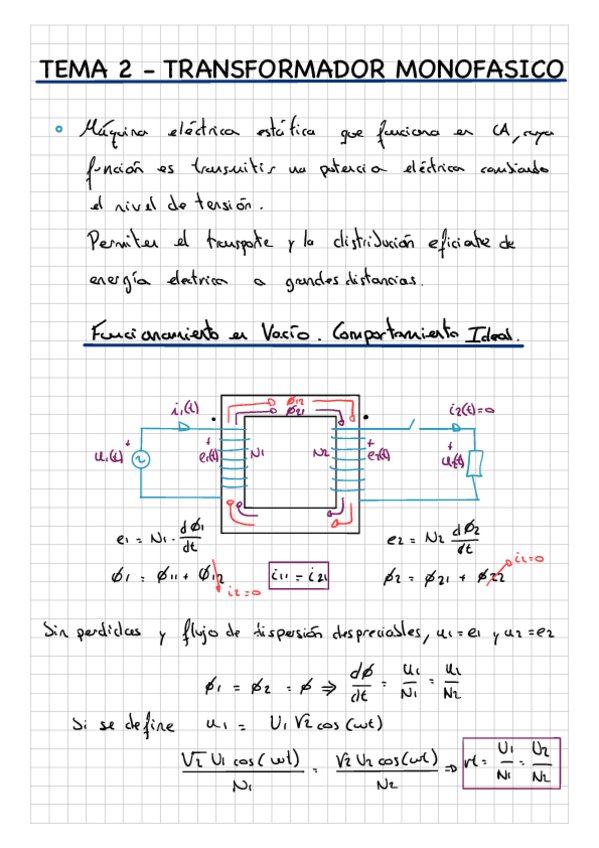 TEMA 2 - TRANSFORMADOR MONOFASICO
Máquina eléctrica estática que funciona en CA, cuya
función es transmitir una potencia eléctrica cambiando
el nivel de tensión.
Permiten el transporte y la distribución eficiente de
energía electrica a grandes distancias.
Funcionamiento en Vacío. Comportamiento Ideal.
ϕ12
ϕ21
i1(t)
i2(t)=0
u1(t)
+
~
+
e1(t)
N1
N2
+
e2(t)
+
u2(t)
e1 = N1 · dϕ1/dt
e2 = N2 dϕ2/dt
i2=0
ϕ1 = ϕ11 + ϕ12
i2=0
i11 = i21
ϕ2 = ϕ21 + ϕ22
Sin perdidas y flujo de dispersión despreciables, u1 = e1 y u2 = e2
ϕ1 = ϕ2 = ϕ ⇒ dϕ/dt = u1/N1 = u1/N2
Si se define u1 = U1 √2 cos(wt)
√2 U1 cos(wt)/N1 = √2 U2 cos(wt)/N2 ⇒ rt = U1/N1 = U2/N2